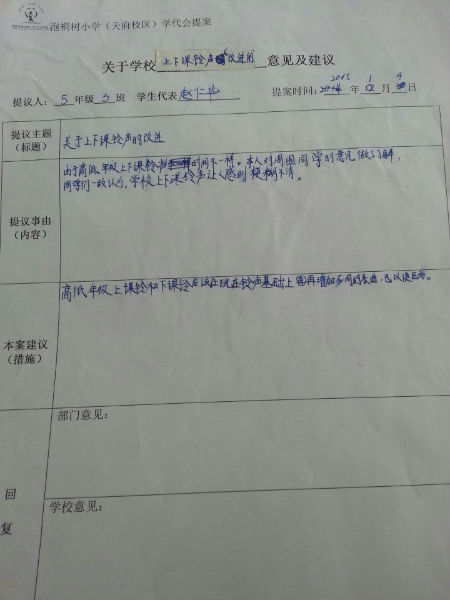 泡桐树小学（天府校区）学代会提案
关于学校 上下课铃声的改进的 意见及建议
提议人： 5 年级 3 班 学生代表 赵仁 提案时间： 2015 年 1 月 4 日
提议主题
（标题）
关于上下课铃声的改进
提议事由
（内容）
由于高低年级上下课铃声时间不一样。本人对周围同学的意见做了了解，
同学们一致认为，学校上下课铃声让人感到模糊不清。
本案建议
（措施）
高低年级上课铃和下课铃应该在现在铃声基础上再增加不同的
回
复
部门意见：
学校意见：